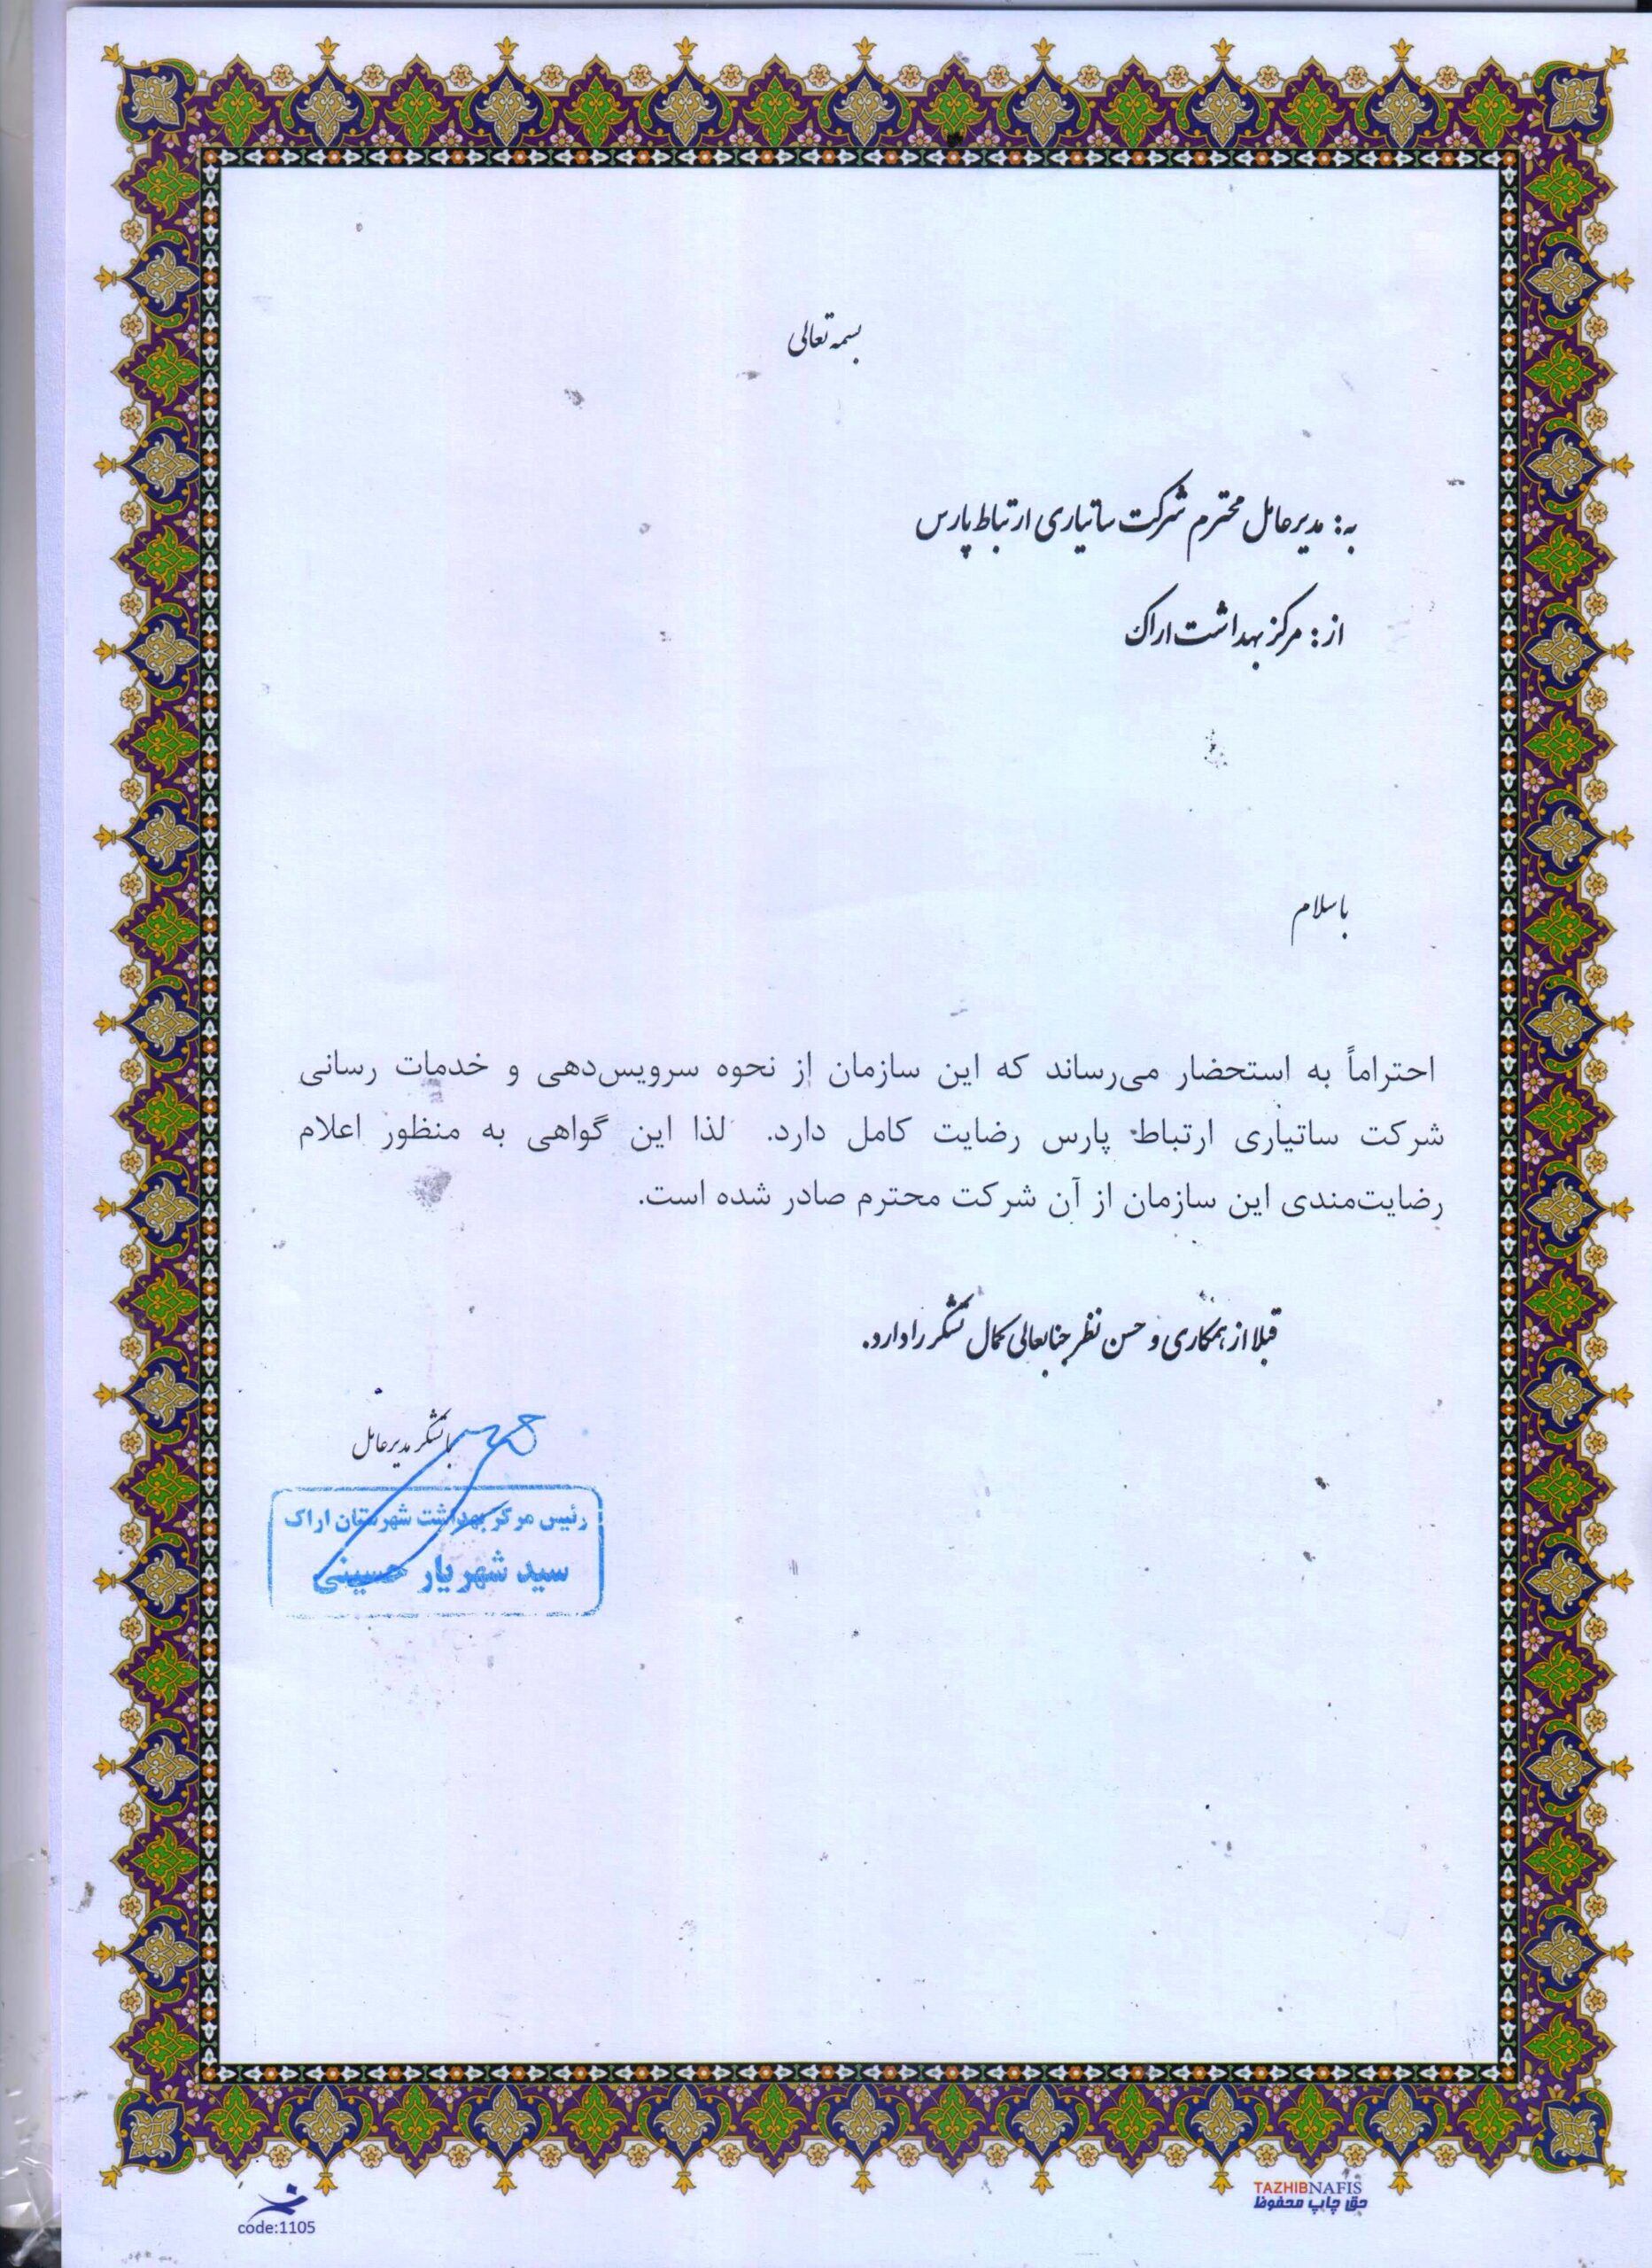 بسمه تعالی
به: مدیرعامل محترم شرکت ساتیاری ارتباط پارس
از: مرکز بهداشت اراک
با سلام
احتراماً به استحضار می‌رساند که این سازمان از نحوه سرویس‌دهی و خدمات رسانی
شرکت ساتیاری ارتباط پارس رضایت کامل دارد. لذا این گواهی به منظور اعلام
رضایت‌مندی این سازمان از آن شرکت محترم صادر شده است.
قبلا از همکاری و حسن نظر جنابعالی کمال تشکر را دارد.
با تشکر مدیرعامل
رئیس مرکز بهداشت شهرستان اراک
سید شهریار حسینی
TAZHIBNAFIS
حق چاپ محفوظ
code:1105